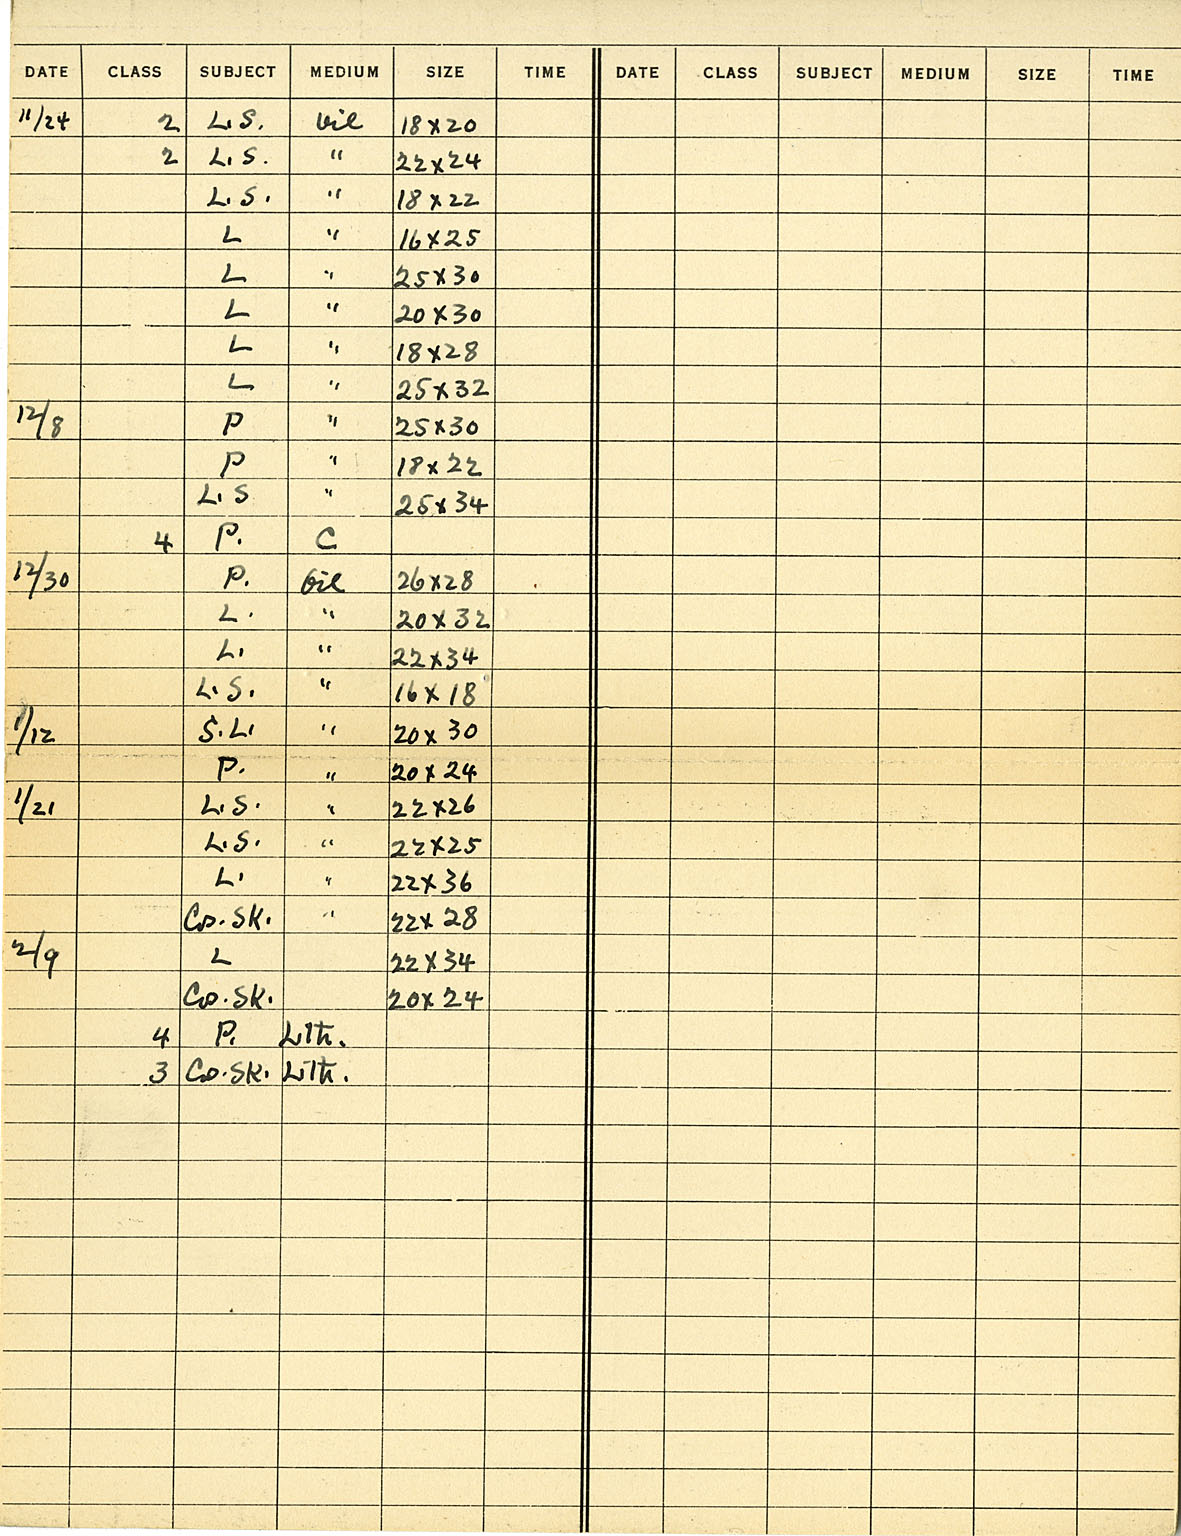 DATE CLASS SUBJECT MEDIUM SIZE TIME DATE CLASS SUBJECT MEDIUM SIZE TIME
11/24 2 L.S. Oil 18x20
2 L.S. " 22x24
L.S. " 18x22
L " 16x25
L " 25x30
L " 20x30
L " 18x28
L " 25x32
12/8 P " 25x30
P " 18x22
L.S " 25x34
4 P. C
12/30 P. Oil 26x28
L. " 20x32
L. " 22x34
L.S. " 16x18
1/12 S.L. " 20x30
P. " 20x24
1/21 L.S. " 22x26
L.S. " 22x25
L. " 22x36
Co.Sk. " 22x28
2/9 L 22x34
Co.Sk. 20x24
4 P. Lith.
3 Co.Sk. Lith.